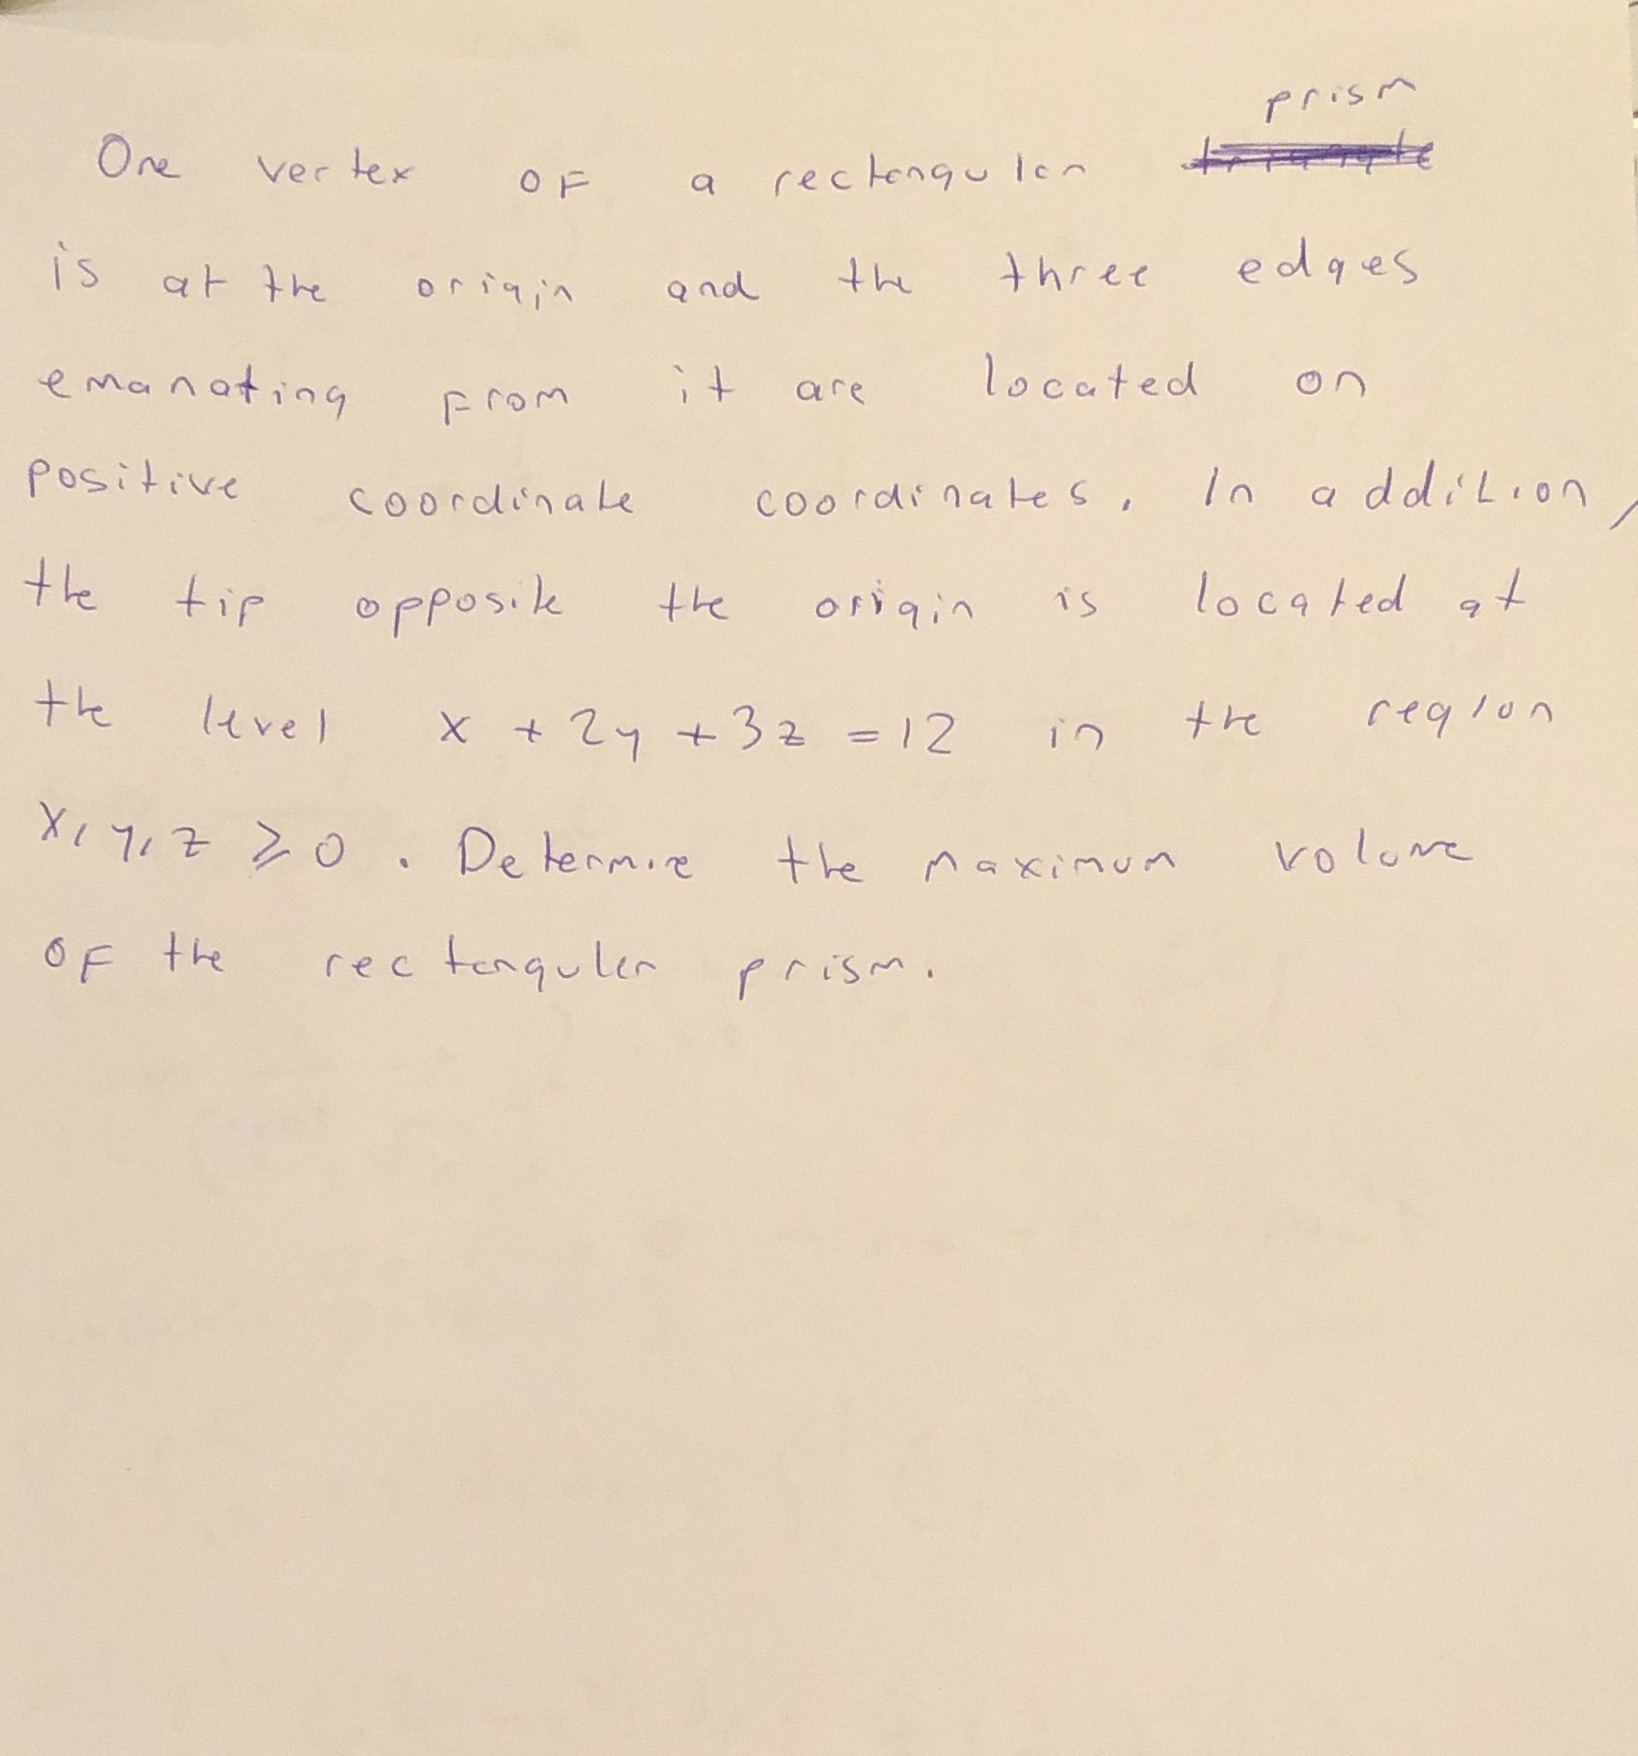 prism
One vertex of a rectangular
is at the origin and the three edges
emanating from it are located on
positive coordinate coordinates. In addition,
the tip opposite the origin is located at
the level x + 2y + 3z = 12 in the region
x, y, z ⩾ 0. Determine the maximum volume
of the rectangular prism.